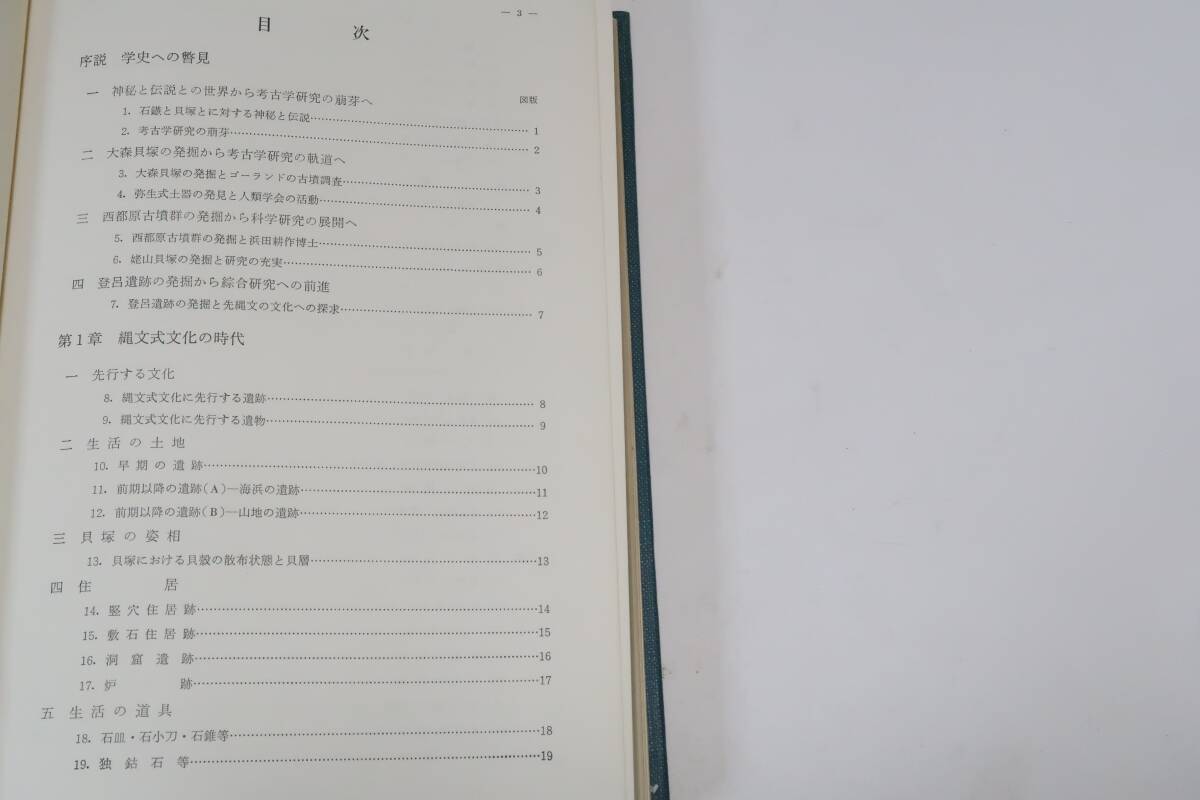 — 3 —
目 次
序説 学史への瞥見
一 神秘と伝説との世界から考古学研究の萠芽へ 図版
1. 石鏃と貝塚とに対する神秘と伝説……1
2. 考古学研究の萠芽……2
二 大森貝塚の発掘から考古学研究の軌道へ
3. 大森貝塚の発掘とゴーランドの古墳調査……3
4. 弥生式土器の発見と人類学会の活動……4
三 西都原古墳群の発掘から科学研究の展開へ
5. 西都原古墳群の発掘と浜田耕作博士……5
6. 姥山貝塚の発掘と研究の充実……6
四 登呂遺跡の発掘から綜合研究への前進
7. 登呂遺跡の発掘と先縄文の文化への探求……7
第1章 縄文式文化の時代
一 先行する文化
8. 縄文式文化に先行する遺跡……8
9. 縄文式文化に先行する遺物……9
二 生活の土地
10. 早期の遺跡……10
11. 前期以降の遺跡(A)—海浜の遺跡……11
12. 前期以降の遺跡(B)—山地の遺跡……12
三 貝塚の姿相
13. 貝塚における貝殻の散布状態と貝層……13
四 住 居
14. 竪穴住居跡……14
15. 敷石住居跡……15
16. 洞窟遺跡……16
17. 炉 跡……17
五 生活の道具
18. 石皿・石小刀・石錐等……18
19. 独鈷石等……19